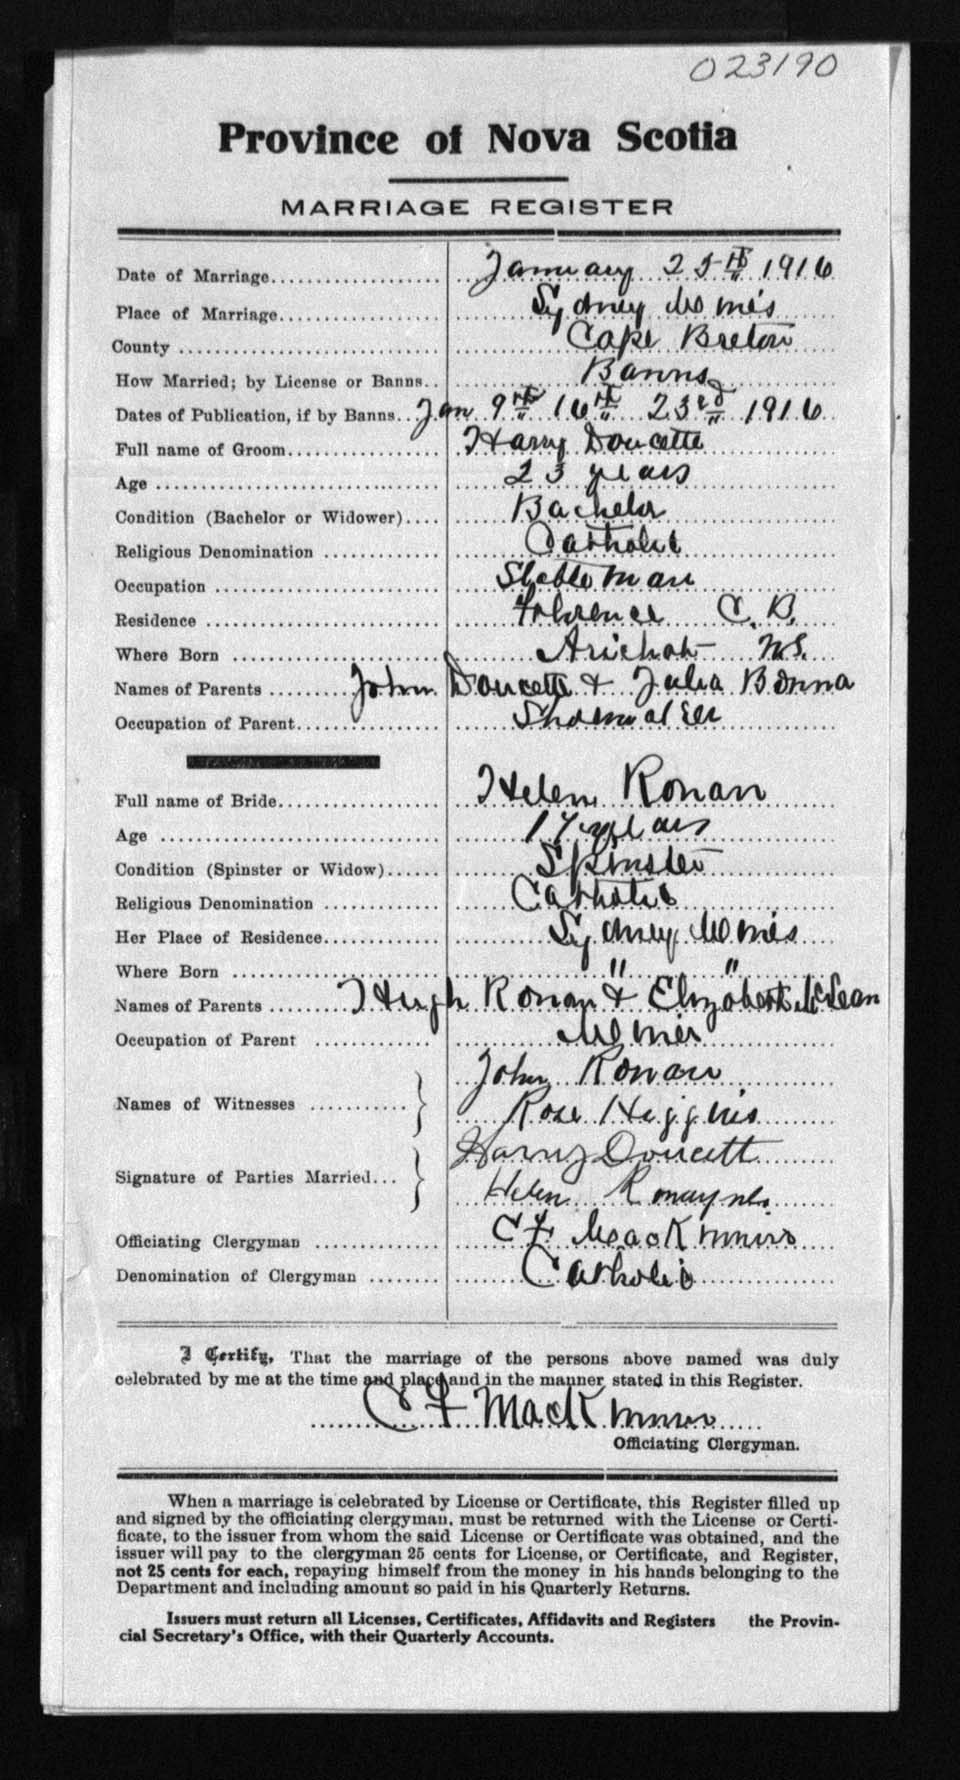 023190
Province of Nova Scotia
MARRIAGE REGISTER
Date of Marriage January 25th 1916
Place of Marriage Sydney Mines
County Cape Breton
How Married; by License or Banns Banns
Dates of Publication, if by Banns Jan 9th 16th 23rd 1916
Full name of Groom Harry Doucette
Age 23 years
Condition (Bachelor or Widower) Bachelor
Religious Denomination Catholic
Occupation Stableman
Residence Florence C. B.
Where Born Arichat N.S.
Names of Parents John Doucette & Julia Bonna
Occupation of Parent Shoemaker
Full name of Bride Helen Ronan
Age 17 years
Condition (Spinster or Widow) Spinster
Religious Denomination Catholic
Her Place of Residence Sydney Mines
Where Born " "
Names of Parents Hugh Ronan & Elizabeth McLean
Occupation of Parent Miner
John Ronan
Names of Witnesses
Rose Higgins
Harry Doucett
Signature of Parties Married
Helen Ronayne.
Officiating Clergyman C F MacKinnon
Denomination of Clergyman Catholic
I Certify, That the marriage of the persons above named was duly
celebrated by me at the time and place and in the manner stated in this Register.
C F MacKinnon
Officiating Clergyman.
When a marriage is celebrated by License or Certificate, this Register filled up
and signed by the officiating clergyman, must be returned with the License or Certi-
ficate, to the issuer from whom the said License or Certificate was obtained, and the
issuer will pay to the clergyman 25 cents for License, or Certificate, and Register,
not 25 cents for each, repaying himself from the money in his hands belonging to the
Department and including amount so paid in his Quarterly Returns.
Issuers must return all Licenses, Certificates, Affidavits and Registers the Provin-
cial Secretary's Office, with their Quarterly Accounts.